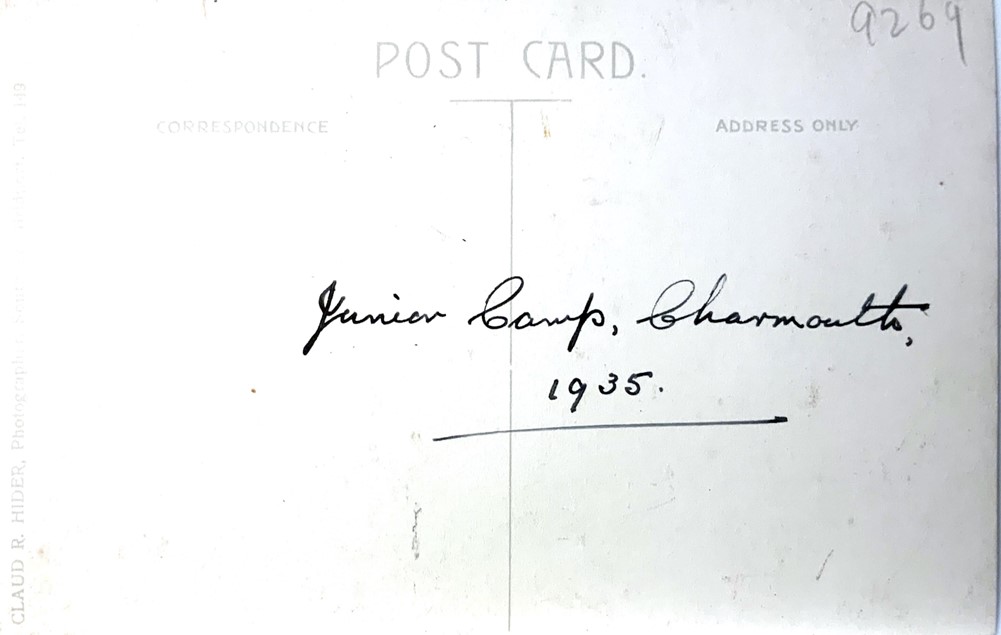 9269
POST CARD.
CORRESPONDENCE
ADDRESS ONLY
Junior Camp, Charmouth,
1935.
CLAUD R. HIDER, Photographer,